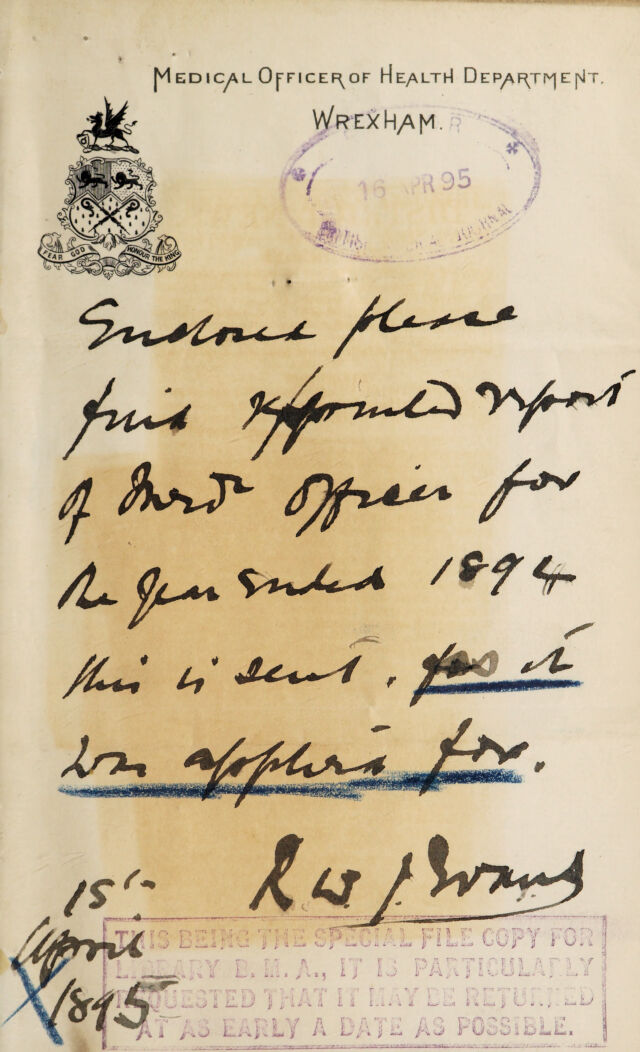 MEDICAL OFFICER OF HEALTH DEPARTMENT.
WREXHAM.
16 APR 95
BRITISH MEDICAL JOURNAL
FEAR GOD HONOUR THE KING
Enclosed please
find printed report
of Medl officer for
the year ended 1894
this is sent. as it
was applied for.
R W J Evans
15th
April
1895
THIS BEING THE SPECIAL FILE COPY FOR
LIBRARY B. M. A., IT IS PARTICULARLY
REQUESTED THAT IT MAY BE RETURNED
AT AS EARLY A DATE AS POSSIBLE.